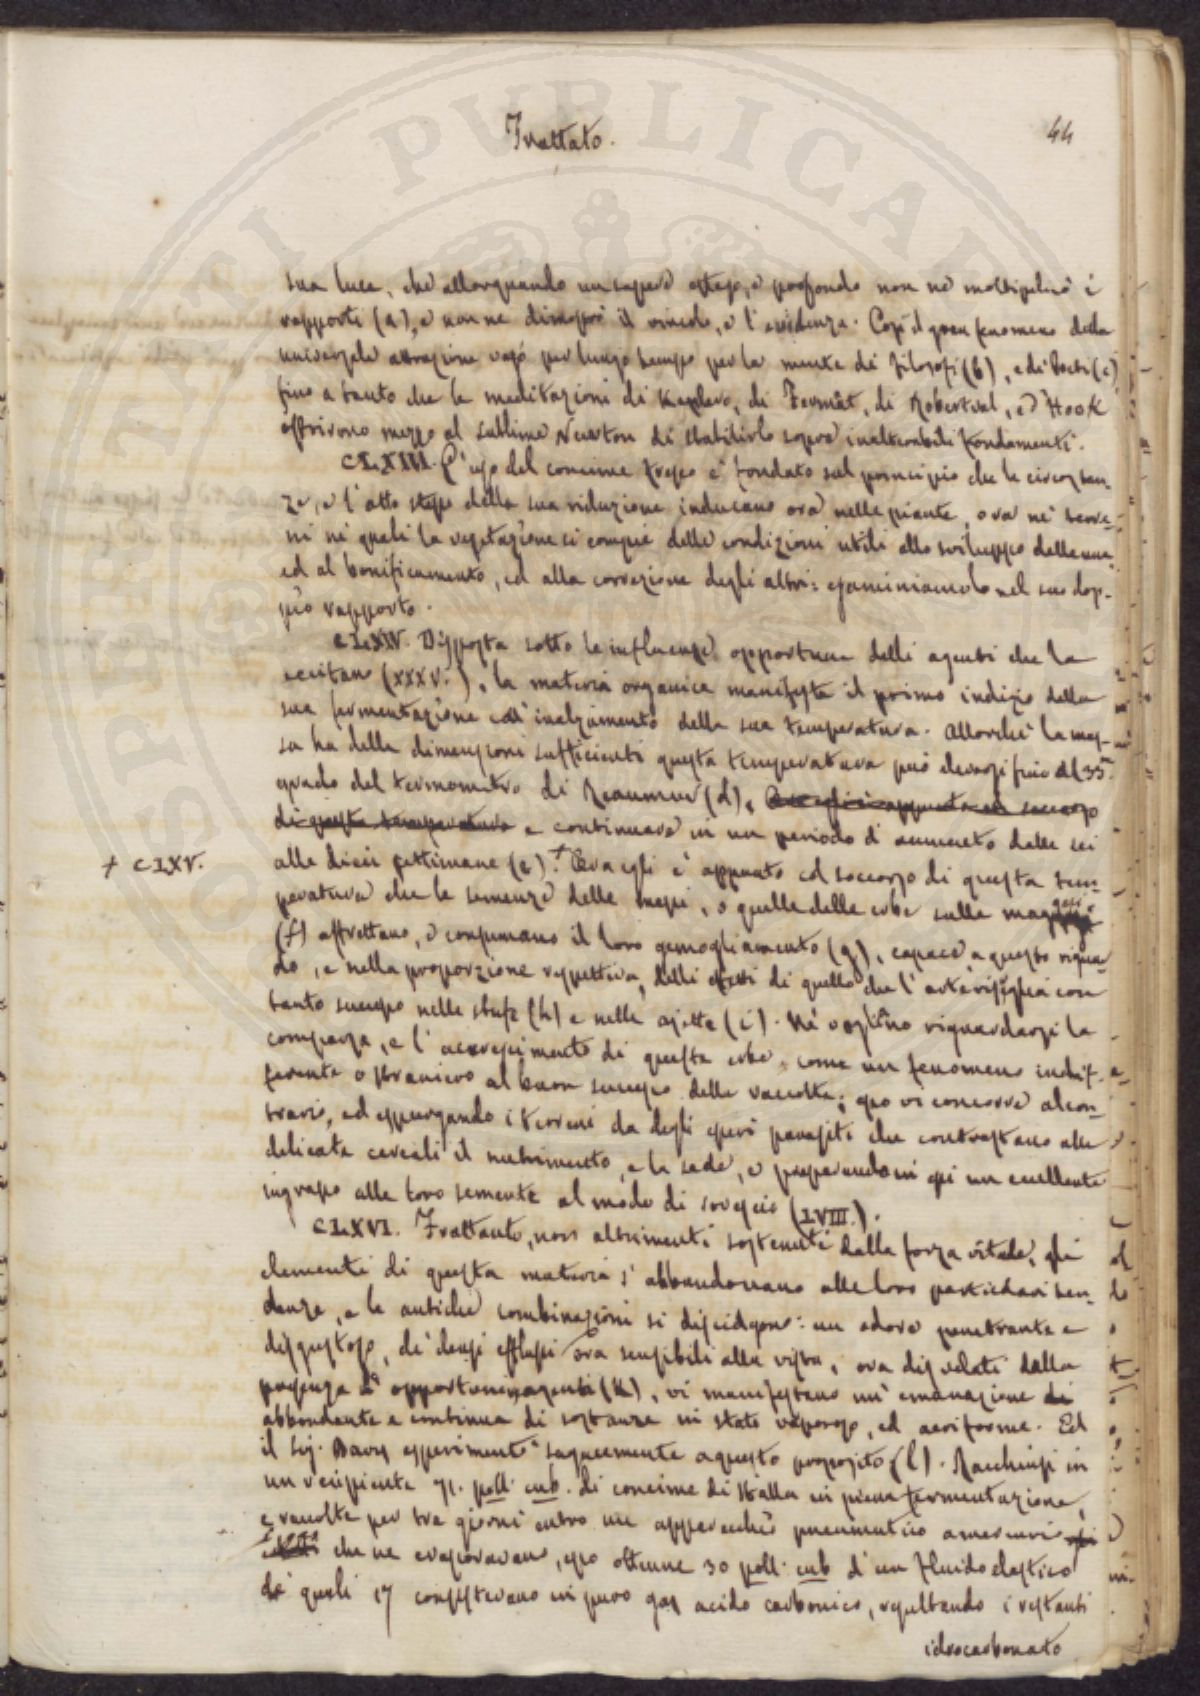 Trattato.
44
sua luce, che allorquando un sapere esteso, e profondo non ne moltiplicò i
rapporti (a), e non ne dimostrò il vincolo, e l'evidenza. Così il gran fenomeno della
universale attrazione vagò per lungo tempo per la mente de' Filosofi (b), e di Poeti (c)
fino a tanto che le meditazioni di Keplero, di Fermat, di Roberval, ed Hook
offrirono mezzo al sublime Newton di stabilirlo sopra inalterabili fondamenti.
CLXIII. L'uso del concime fresco è fondato sul principio che le circostan-
ze, e l'atto stesso della sua riduzione inducano ora nelle piante, ora ne' terre-
ni ne' quali la vegetazione si compie delle condizioni utili allo sviluppo delle une,
ed al bonificamento, ed alla correzione degli altri: esaminiamolo nel suo dop-
pio rapporto.
CLXIV. Disposta sotto le influenze opportune delli agenti che la
eccitano (XXXV.), la materia organica manifesta il primo indizio della
sua fermentazione coll'inalzamento della sua temperatura. Allorchè la mas-
sa ha delle dimensioni sufficienti questa temperatura può elevarsi fino al 35°.
grado del termometro di Reaumur (d), Ora egli è appunto col soccorso
di questa temperatura e continuare in un periodo di aumento dalle sei
+ CLXV.
alle dieci settimane (e).+ Ora egli è appunto col soccorso di questa tem-
peratura che le semenze delle messi, o quelle delle erbe sulle maggesi
(f) affrettano, e consumano il loro germogliamento (g), capace a questo riguar-
do, e nella proporzione respettiva, delli effetti di quello che l'arte risveglia con
tanto successo nelle stufe (h) e nelle ajette (i). Nè vogliono riguardarsi la
comparsa, e l'accrescimento di queste erbe come un fenomeno indif-
ferente o straniero al buon successo delle raccolte; esso vi concorre al con-
trario, ed espurgando i terreni da degli esseri parasiti che contrastano alle
delicate cereali il nutrimento, e la sede, e preparandovi essi un eccellente
ingrasso alle loro sementi al modo di sovescio (LVIII.).
CLXVI. Frattanto, non altrimenti sostenuti dalla forza vitale, gli
elementi di questa materia s'abbandonano alle loro particolari ten-
denze, e le antiche combinazioni si discidono: un odore penetrante e
disgustoso, de' densi effluvi ora sensibili alla vista, ora disvelati dalla
presenza d'opportuni agenti (k), vi manifestano un'emanazione di
abbondante e continua, di sostanze in stato vaporoso, ed aeriforme. Ed
il Sig. Davy esperimentò sagacemente a questo proposito (l). Racchiusi in
un recipiente 71. poll. cub. di concime di stalla in piena fermentazione,
e raccolte per tre giorni entro un apparecchio pneumatico a mercurio
che ne evaporavano, esso ottenne 30 poll. cub d'un fluido elastico
de' quali 17 consistevano in puro gas acido carbonico, resultando i restanti
idrocarbonato